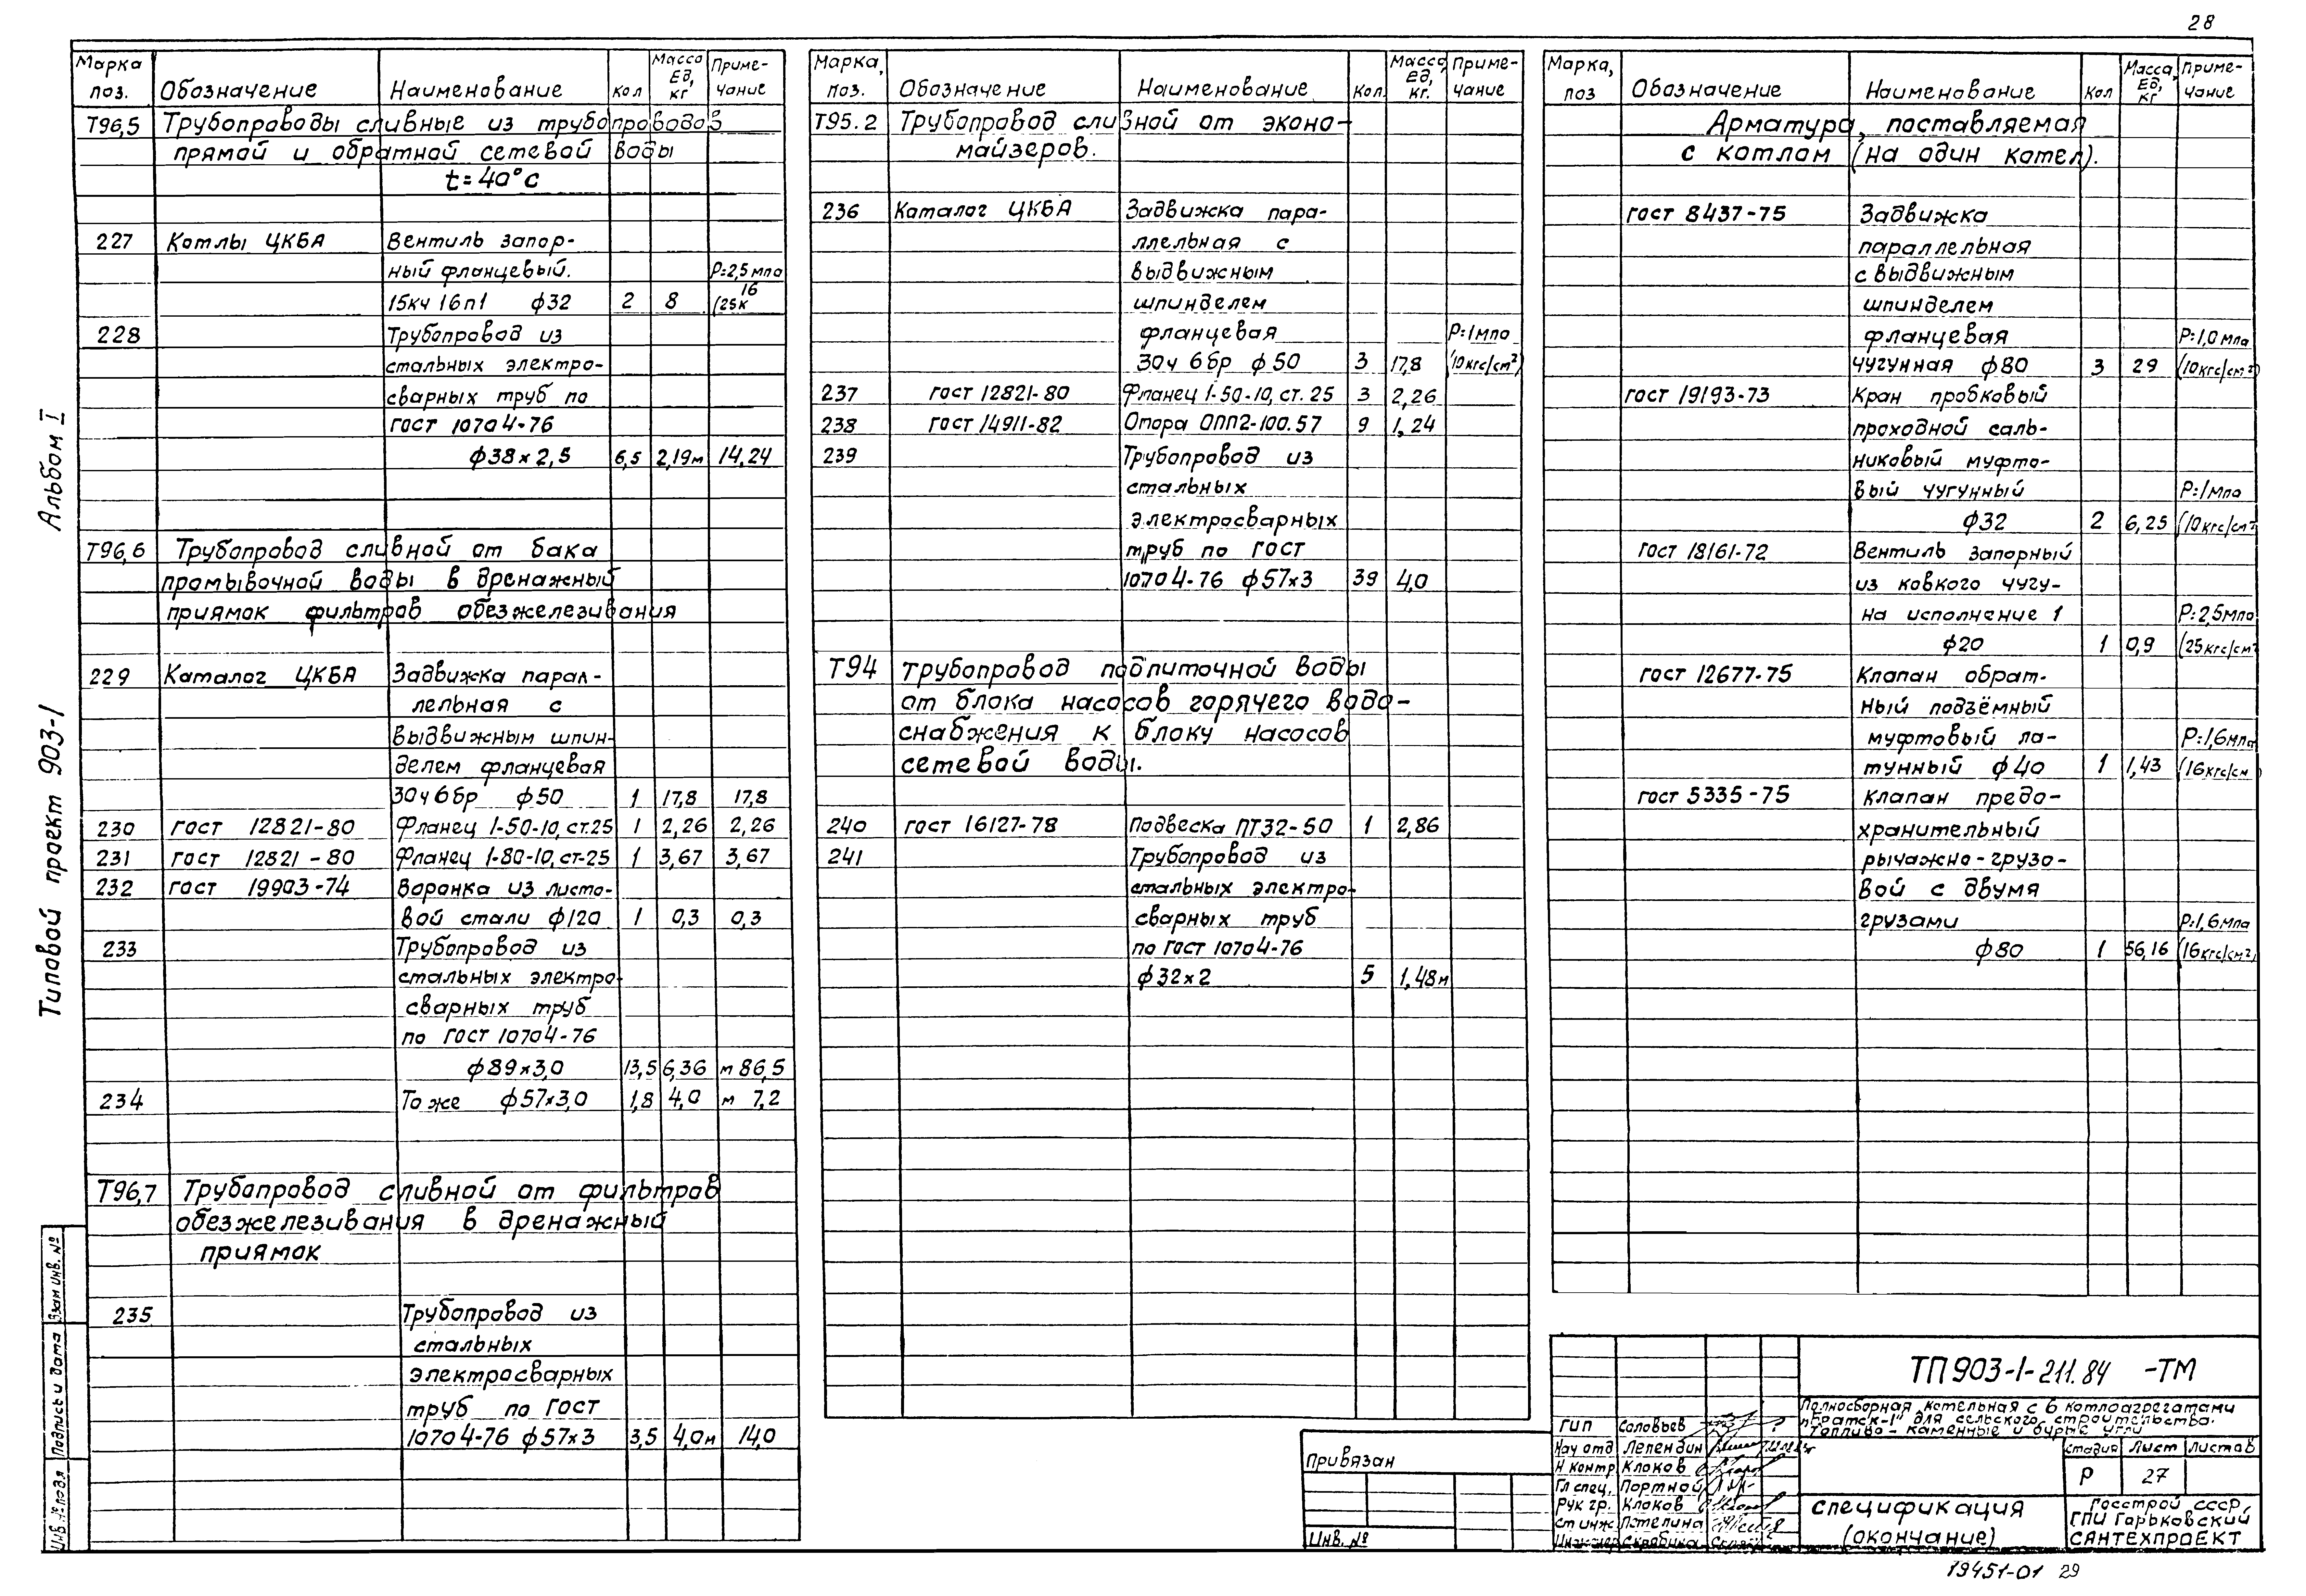 28
Альбом I
Типовой проект 903-1
Марка поз. Обозначение Наименование Кол Масса Ед, кг Приме-чание
Т96,5 Трубопроводы сливные из трубопроводов
прямой и обратной сетевой воды
t=40°С
227 Котлы ЦКБА Вентиль запор-
ный фланцевый. Р=2,5мпа
15кч 16п1 ф32 2 8 (25к 16
228 Трубопровод из
стальных электро-
сварных труб по
ГОСТ 10704-76
ф38х2,5 6,5 2,19м 14,24
Т96,6 Трубопровод сливной от бака
промывочной воды в дренажный
приямок фильтров обезжелезивания
229 Каталог ЦКБА Задвижка парал-
лельная с
выдвижным шпин-
делем фланцевая
30ч6бр ф50 1 17,8 17,8
230 ГОСТ 12821-80 Фланец 1-50-10, ст.25 1 2,26 2,26
231 ГОСТ 12821-80 Фланец 1-80-10, ст-25 1 3,67 3,67
232 ГОСТ 19903-74 Воронка из листо-
вой стали ф120 1 0,3 0,3
233 Трубопровод из
стальных электро-
сварных труб
по ГОСТ 10704-76
ф89х3,0 13,5 6,36 м 86,5
234 То же ф57х3,0 1,8 4,0 м 7,2
Т96,7 Трубопровод сливной от фильтров
обезжелезивания в дренажный
приямок
235 Трубопровод из
стальных
электросварных
труб по ГОСТ
10704-76 ф57х3 3,5 4,0м 14,0
Марка, поз. Обозначение Наименование Кол. Масса Ед, кг. Приме-чание
Т95.2 Трубопровод сливной от эконо-
майзеров.
236 Каталог ЦКБА Задвижка пара-
ллельная с
выдвижным
шпинделем
фланцевая Р=1мпа
30ч 6бр ф50 3 17,8 (10кгс/см²)
237 ГОСТ 12821-80 Фланец 1-50-10, ст. 25 3 2,26
238 ГОСТ 14911-82 Опора ОПП2-100.57 9 1,24
239 Трубопровод из
стальных
электросварных
труб по ГОСТ
10704-76 ф57х3 39 4,0
Т94 трубопровод подпиточной воды
от блока насосов горячего водо-
снабжения к блоку насосов
сетевой воды.
240 ГОСТ 16127-78 Подвеска ПТ32-50 1 2,86
241 Трубопровод из
стальных электро-
сварных труб
по ГОСТ 10704-76
ф32х2 5 1,48м
Марка, поз Обозначение Наименование Кол Масса, Ед, кг Приме-чание
Арматура, поставляемая
с котлом (на один котел).
ГОСТ 8437-75 Задвижка
параллельная
с выдвижным
шпинделем
фланцевая Р=1,0мпа
чугунная ф80 3 29 (10кгс/см²
ГОСТ 19193-73 Кран пробковый
проходной саль-
никовый муфто-
вый чугунный Р=1мпа
ф32 2 6,25 (10кгс/см²
ГОСТ 18161-72 Вентиль запорный
из ковкого чугу-
на исполнение 1 Р=2,5мпа
ф20 1 0,9 (25кгс/см²
ГОСТ 12677-75 Клапан обрат-
ный подъёмный
муфтовый ла- Р=1,6мпа
тунный ф40 1 1,43 (16кгс/см)
ГОСТ 5335-75 Клапан предо-
хранительный
рычажно-грузо-
вой с двумя
грузами Р=1,6мпа
ф80 1 56,16 (16кгс/см²)
Взам инв. №
Подпись и дата
Инв. № подл
Привязан
Инв. №
ТП903-1-211.84 -ТМ
Полносборная котельная с 6 котлоагрегатами
„Братск-1" для сельского строительства.
Топливо - каменные и бурые угли
ГИП Соловьев
Нач отд Лепендин
Н контр Клоков
Гл спец. Портной
Рук гр. Клоков
Ст инж Потелина
Инженер Скрябина
стадия Лист Листов
Р 27
Спецификация
(окончание)
Госстрой СССР
ГПИ Горьковский
САНТЕХПРОЕКТ
19451-01 29